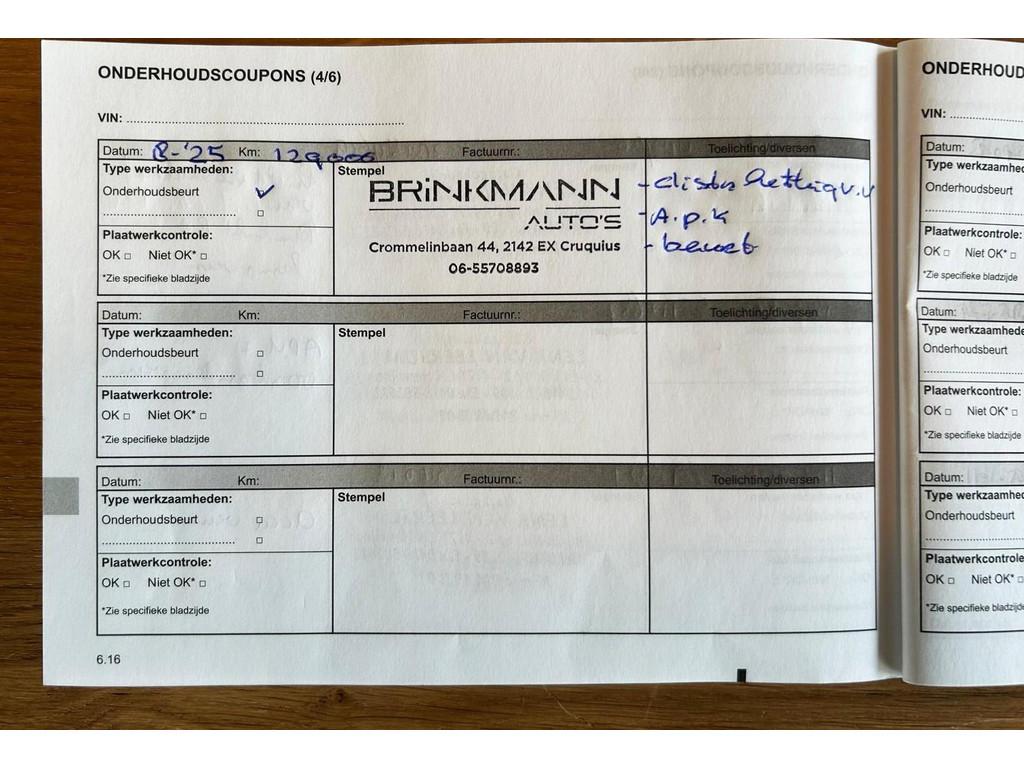 ONDERHOUDSCOUPONS (4/6)
VIN: ................................................
Datum: 8-'25 Km: 129000 Factuurnr.: Toelichting/diversen
Type werkzaamheden:
Onderhoudsbeurt ✓
Plaatwerkcontrole:
OK □ Niet OK* □
*Zie specifieke bladzijde
Stempel
BRINKMANN
AUTO'S
Crommelinbaan 44, 2142 EX Cruquius
06-55708893
- A.p.k
Datum: Km: Factuurnr.: Toelichting/diversen
Type werkzaamheden:
Onderhoudsbeurt □
Plaatwerkcontrole:
OK □ Niet OK* □
*Zie specifieke bladzijde
Stempel
Datum: Km: Factuurnr.: Toelichting/diversen
Type werkzaamheden:
Onderhoudsbeurt □
Plaatwerkcontrole:
OK □ Niet OK* □
*Zie specifieke bladzijde
Stempel
6.16
ONDERHOUD
VIN:
Datum:
Type werkzaamhede
Onderhoudsbeurt
Plaatwerkcontrole:
OK □ Niet OK* □
*Zie specifieke bladzijde
Datum:
Type werkzaamhede
Onderhoudsbeurt
Plaatwerkcontrole:
OK □ Niet OK* □
*Zie specifieke bladzijde
Datum:
Type werkzaamhede
Onderhoudsbeurt
Plaatwerkcontrole
OK □ Niet OK* □
*Zie specifieke bladzijd